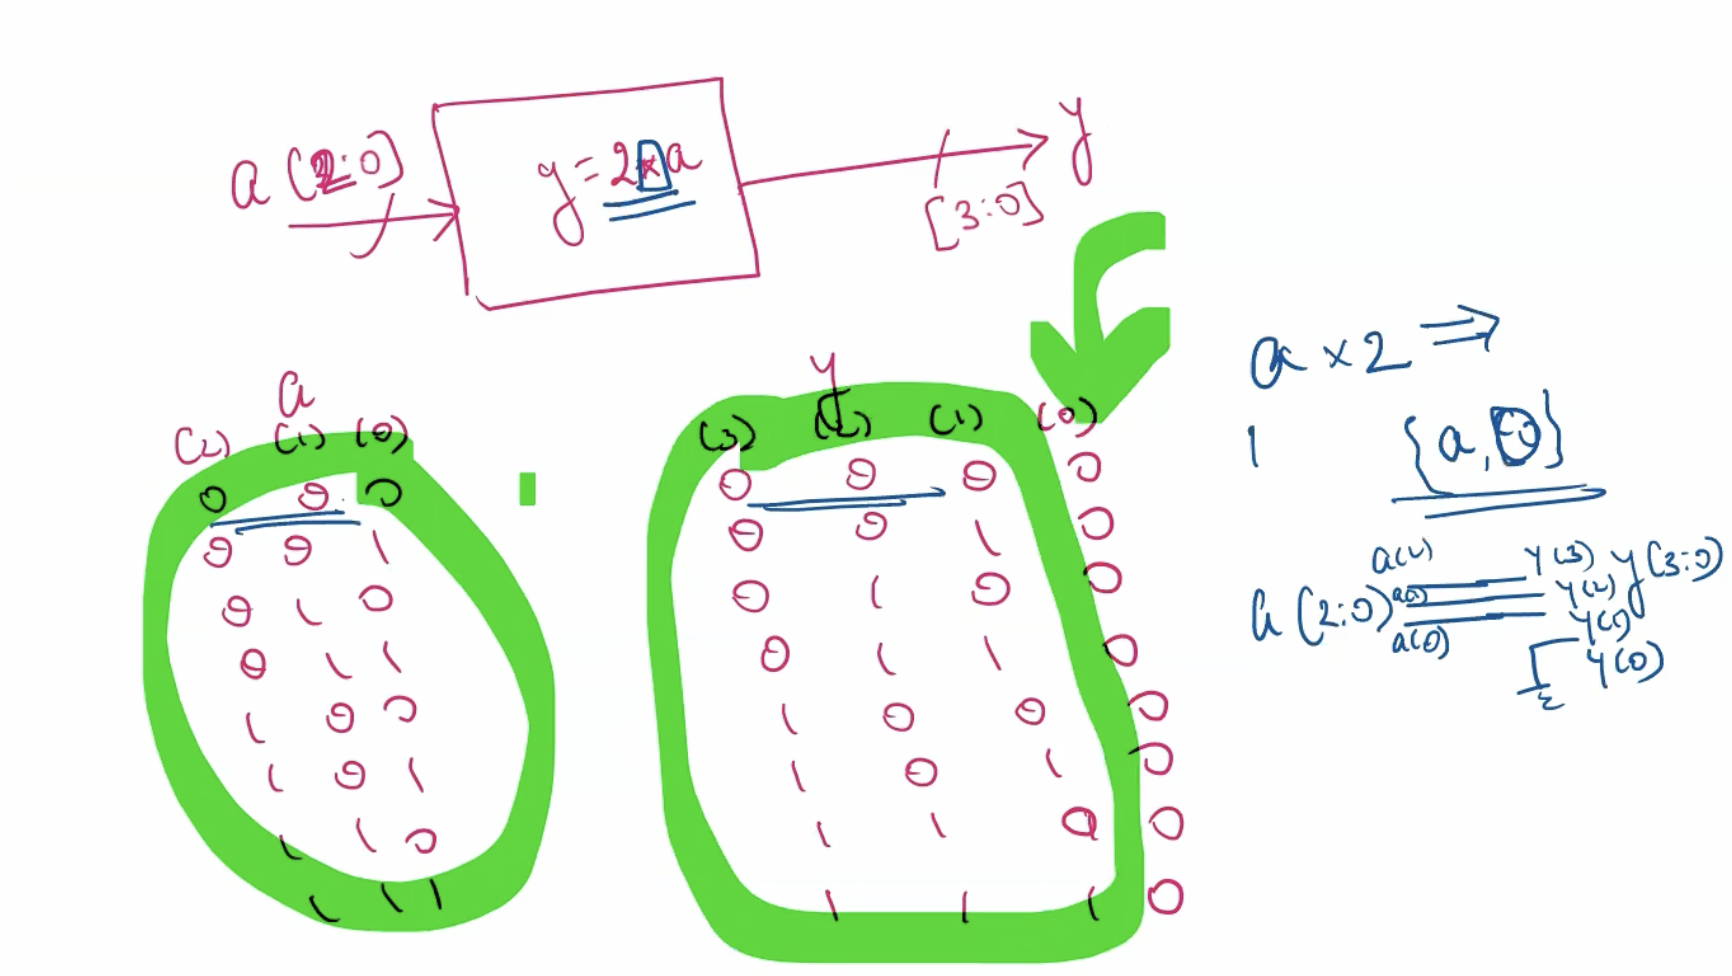 a (2:0)
y = 2*a
y
[3:0]
a
(2) (1) (0)
0 0 0
0 0 1
0 1 0
0 1 1
1 0 0
1 0 1
1 1 0
1 1 1
y
(3) (2) (1) (0)
0 0 0 0
0 0 1 0
0 1 0 0
0 1 1 0
1 0 0 0
1 0 1 0
1 1 0 0
1 1 1 0
a × 2 ⇒
{a, 0}
a(2:0)
a(2)
a(1)
a(0)
y(3)
y(2)
y(1)
y(0)
y(3:0)